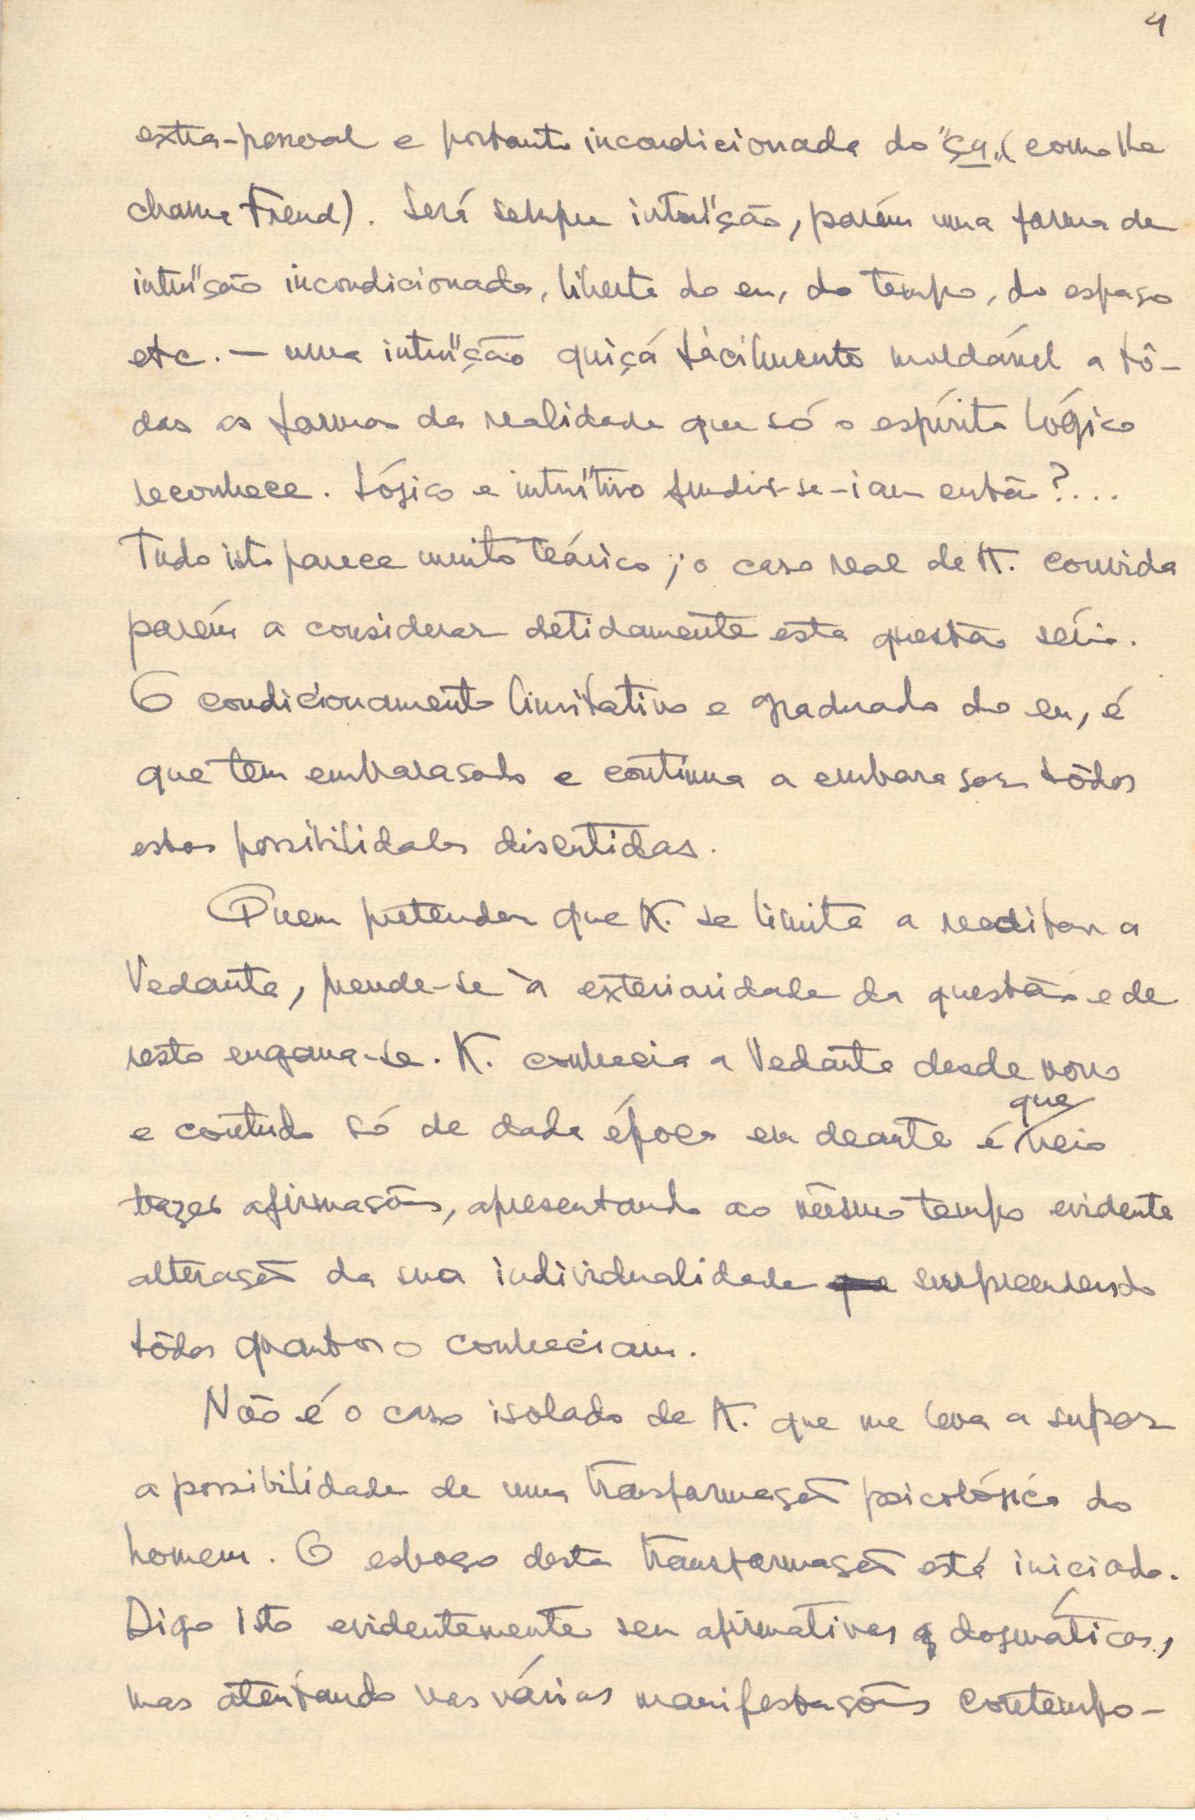 4
extra-pessoal e portanto incondicionada do "ça" (como lhe
chama Freud). Será sempre intuïção, porém uma forma de
intuïção incondicionada, liberta do eu, do tempo, do espaço
etc. — uma intuïção quiçá fàcilmente moldável a tô-
das as formas da realidade que só o espírito lógico
reconhece. Lógico e intuïtivo fundir-se-iam então?...
Tudo isto parece muito teórico; o caso real de K. convida
porém a considerar detidamente esta questão séria.
O condicionamento limitativo e graduado do eu, é
que tem embaraçado e continua a embaraçar tôdas
estas possibilidades discutidas.
Quem pretender que K. se limita a reeditar a
Vedanta, prende-se à exterioridade da questão e de
resto engana-se. K. conhecia a Vedanta desde novo
que
e contudo só de dada época em deante é veio
trazer afirmações, apresentando ao mesmo tempo evidente
alteração da sua individualidade surpreendendo
tôdos quantos o conheciam.
Não é o caso isolado de K. que me leva a supor
a possibilidade de uma transformação psicológica do
homem. O esboço desta transformação está iniciado.
Digo isto evidentemente sem afirmativas dogmáticas,
mas atentando nas várias manifestações contempo-